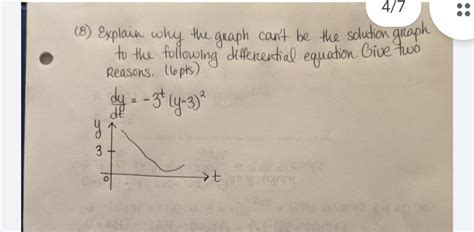 4/7
(8) Explain why the graph can't be the solution graph
to the following differential equation. Give two
Reasons. (6 pts)
dy/dt = -3^t (y-3)^2
y
3
0
t